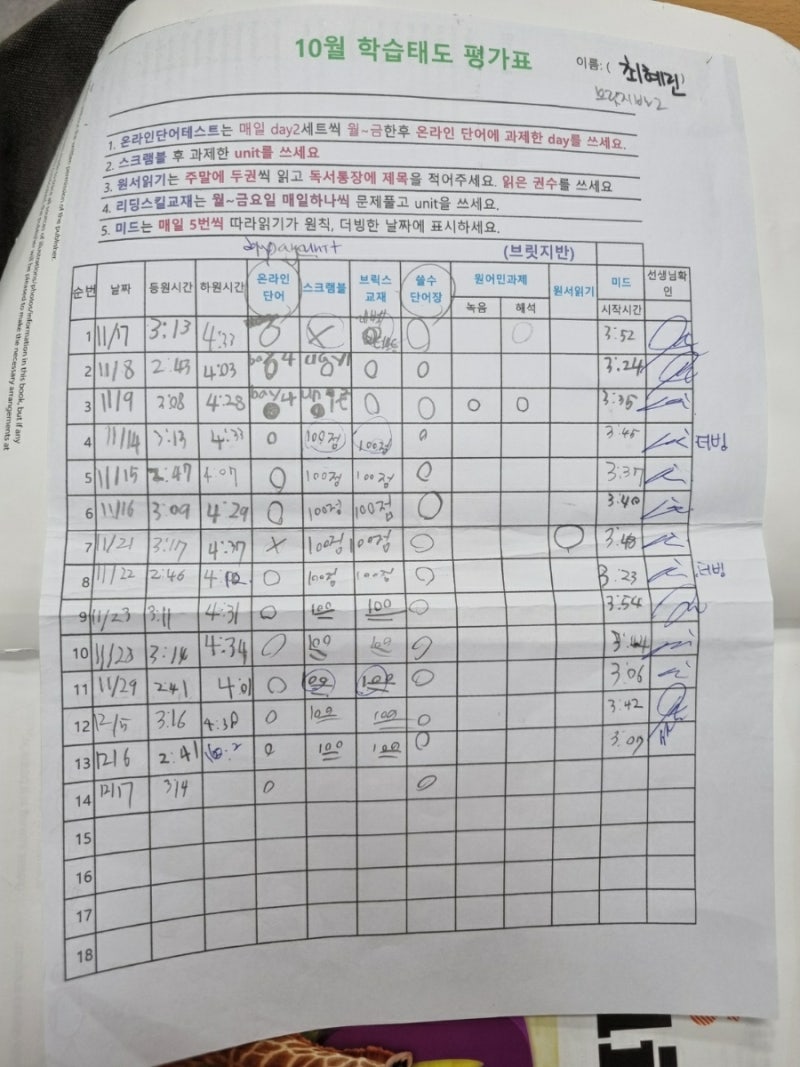 10월 학습태도 평가표
이름:( 최혜린)
1. 온라인단어테스트는 매일 day2세트씩 월~금한후 온라인 단어에 과제한 day를 쓰세요.
2. 스크램블 후 과제한 unit를 쓰세요
3. 원서읽기는 주말에 두권씩 읽고 독서통장에 제목을 적어주세요. 읽은 권수를 쓰세요
4. 리딩스킬교재는 월~금요일 매일하나씩 문제풀고 unit을 쓰세요.
5. 미드는 매일 5번씩 따라읽기가 원칙, 더빙한 날짜에 표시하세요.
(브릿지반)
순번 날짜 등원시간 하원시간 온라인 단어 스크램블 브릭스 교재 쓸수 단어장 원어민과제 녹음 해석 원서읽기 미드 시작시간 선생님확인
1 11/7 3:13 4:33 O X O 3:52
2 11/8 2:43 4:03 day 4 O O 3:24
3 11/9 2:08 4:28 day 4 O O O O 3:35
4 11/14 3:13 4:33 O 100점 100점 O 3:45 더빙
5 11/15 2:47 4:07 O 100점 100점 O 3:37
6 11/16 3:09 4:29 O 100점 100점 O 3:40
7 11/21 3:17 4:37 X 100점 100점 O O 3:43
8 11/22 2:46 O 100점 100점 O 3:23 더빙
9 11/23 3:11 4:31 O 100 100 O 3:54
10 11/28 3:14 4:34 O 100 100 O 3:44
11 11/29 2:41 4:01 O 100 100 O 3:06
12 12/5 3:16 O 100 100 O 3:42
13 12/6 2:41 O 100 100 O 3:07
14 3:14 O O
15
16
17
18